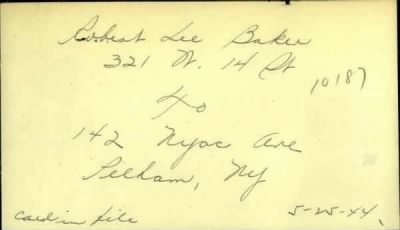 Robert Lee Baker
321 W. 14 St
10187
To
142 Nyac Ave
Pelham, NY
Card in file
5-25-44